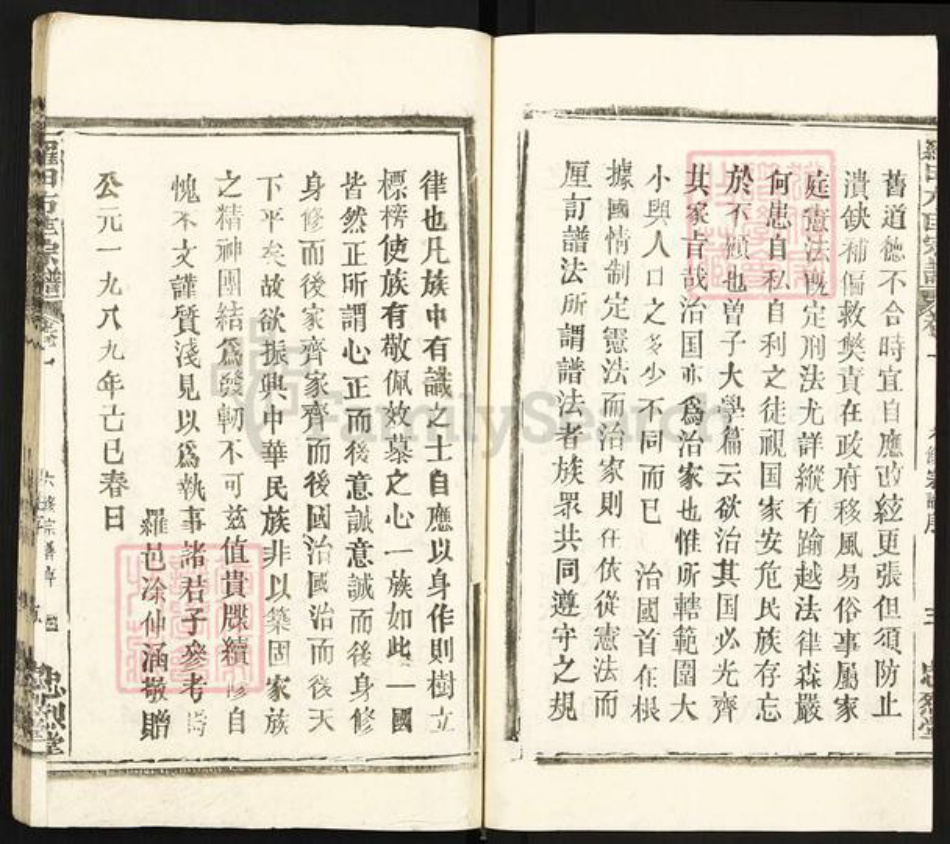 舊道德不合時宜自應改絃更張但須防止
潰缺補偏救獘責在政府移風易俗事屬家
庭憲法既定刑法尤詳縱有踰越法律森嚴
何患自私自利之徒視国家安危民族存忘
於不顧也曽子大學篇云欲治其国必光齊
其家旨哉治国亦爲治家也惟所轄範圍大
小與人口之多少不同而已 治國首在根
據國情制定憲法而治家則在依從憲法而
厘訂譜法所謂譜法者族眾共同遵守之規
律也凡族中有識之士自應以身作則樹立
標榜使族有敬佩效慕之心一族如此一國
皆然正所謂心正而後意誠意誠而後身修
身修而後家齊家齊而後國治國治而後天
下平矣故欲振興中華民族非以築固家族
之精神團結爲發軔不可兹值貴牒續修自
愧不文謹質淺見以爲執事諸君子參考時
公元一九八九年己巳春日
羅邑凃仲涵敬贈
羅田方氏宗譜
卷一
六修宗譜序
忠烈堂
FamilySearch